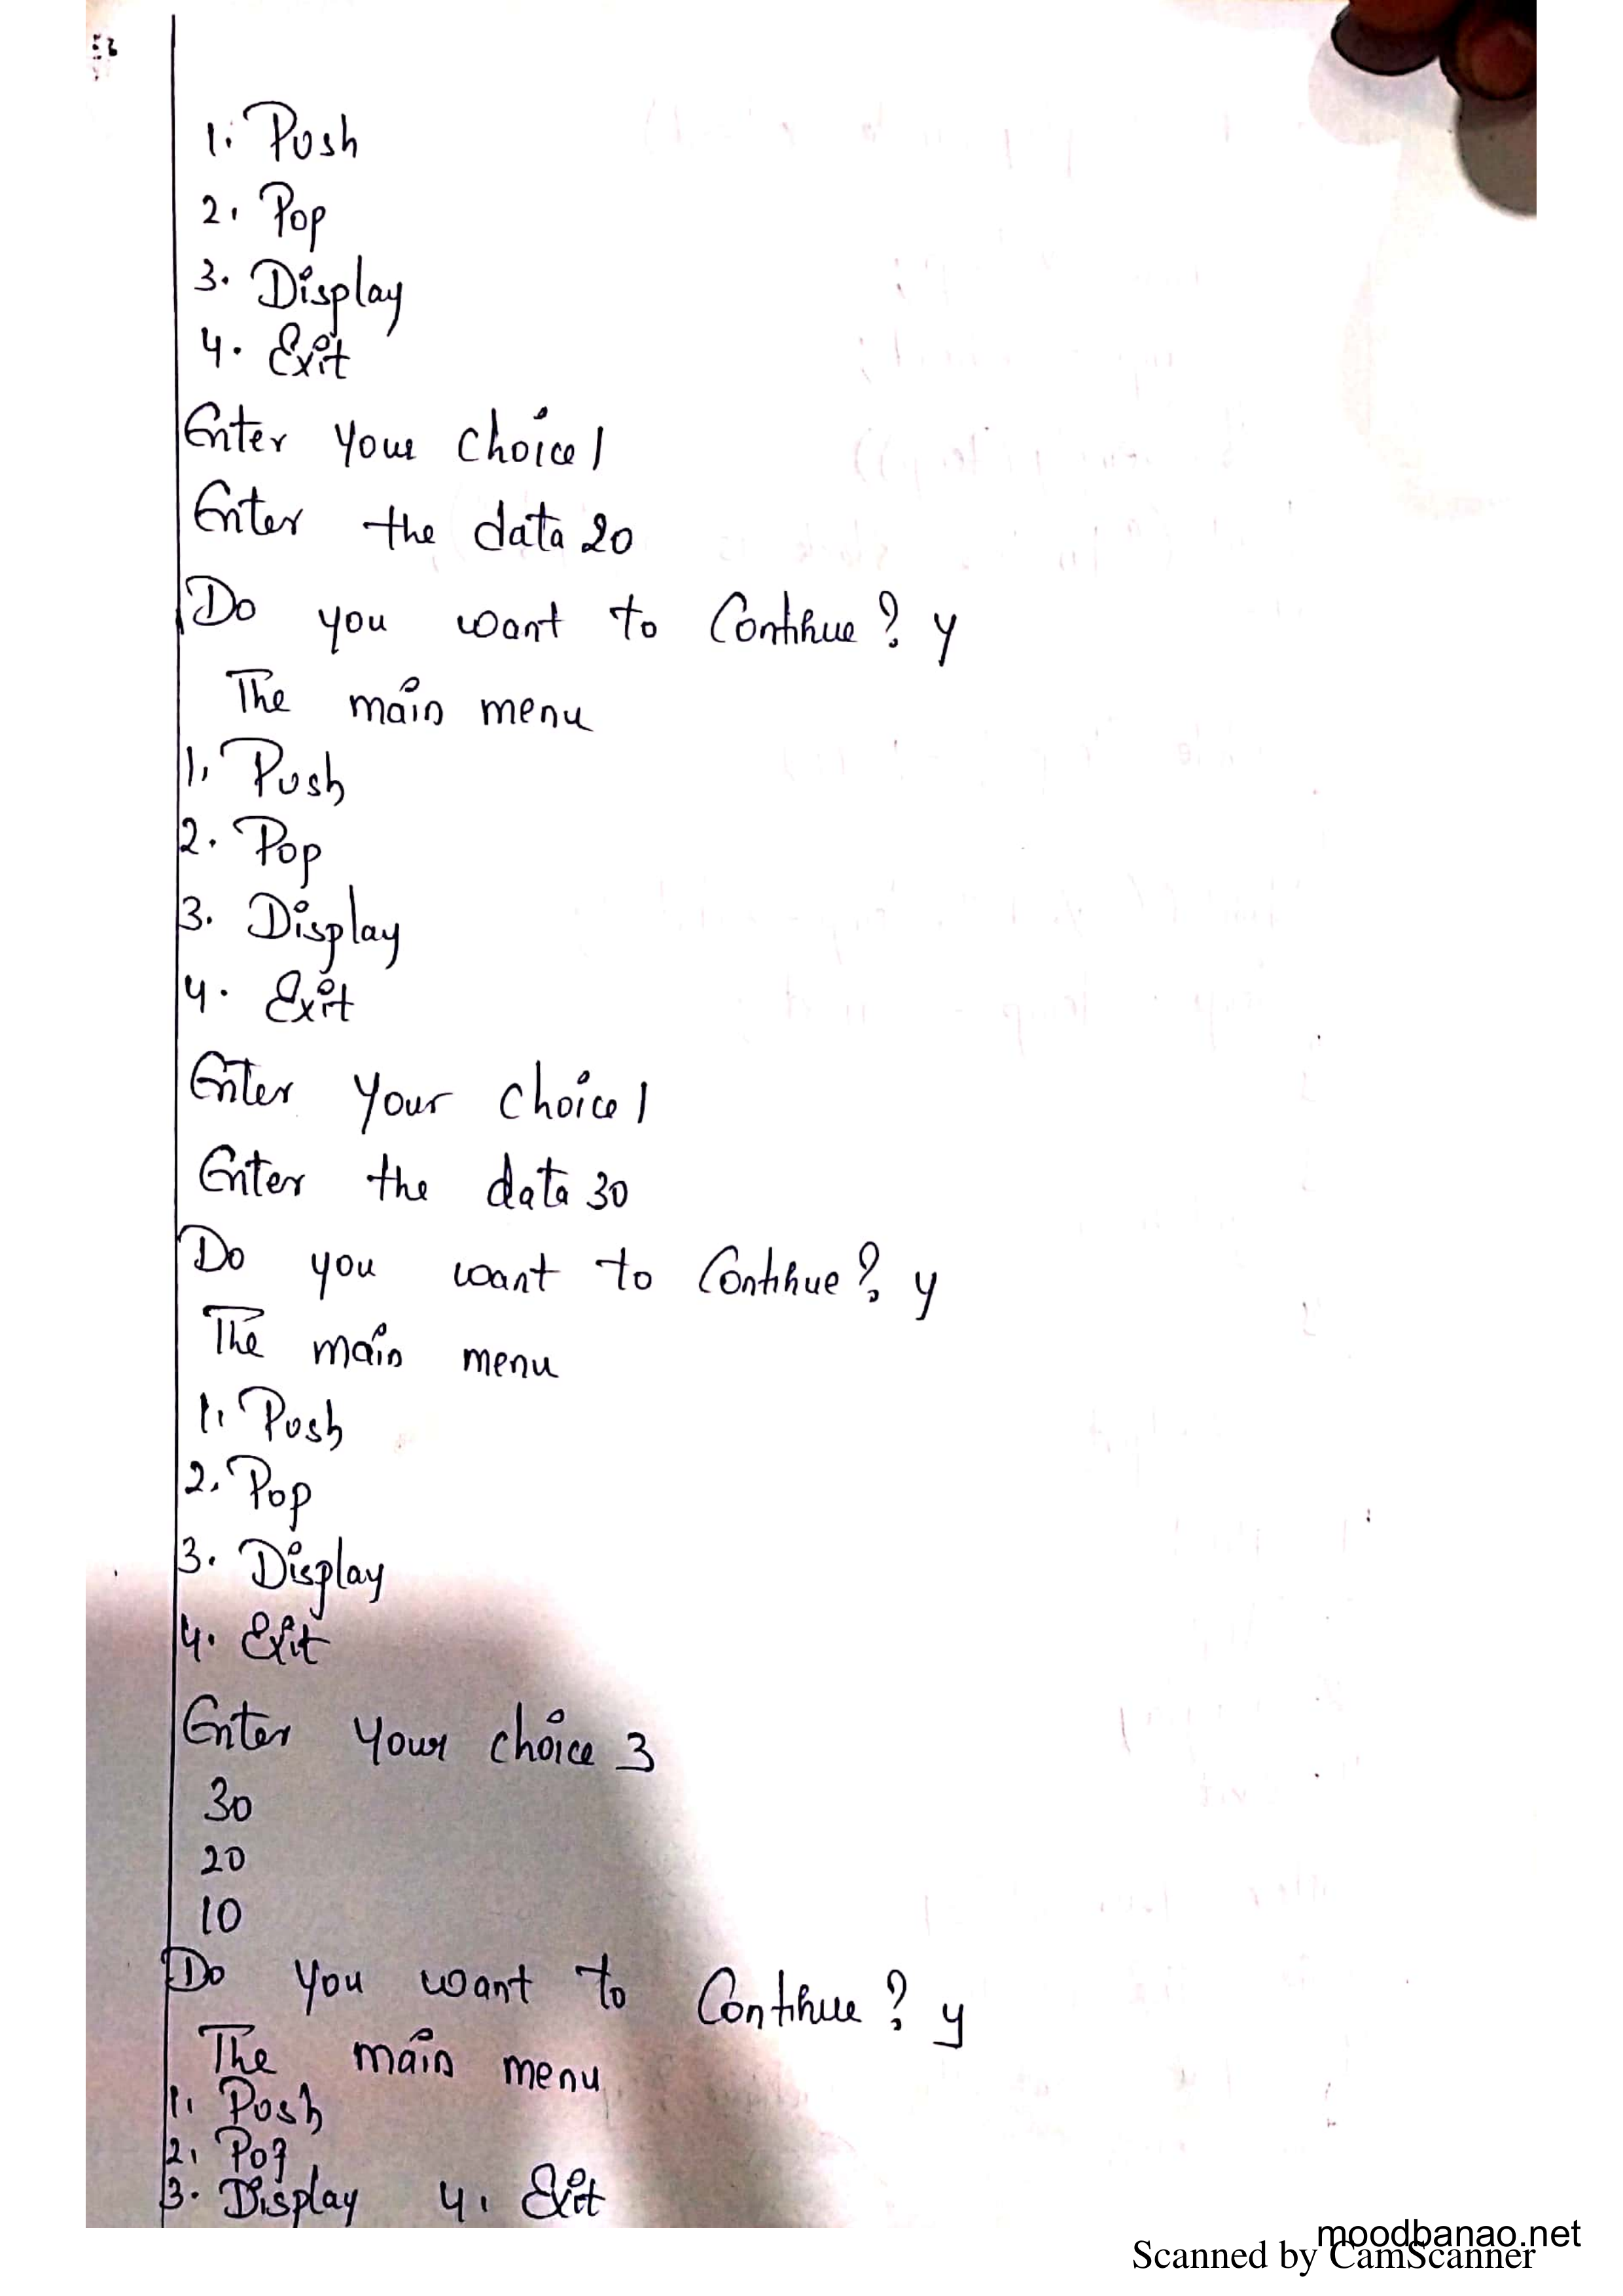 1. Push
2. Pop
3. Display
4. Exit
Enter your choice 1
Enter the data 20
Do you want to Continue? y
The main menu
1. Push
2. Pop
3. Display
4. Exit
Enter your choice 1
Enter the data 30
Do you want to Continue? y
The main menu
1. Push
2. Pop
3. Display
4. Exit
Enter your choice 3
30
20
10
Do you want to Continue? y
The main menu
1. Push
2. Pop
3. Display 4. Exit
moodbanao.net
Scanned by CamScanner